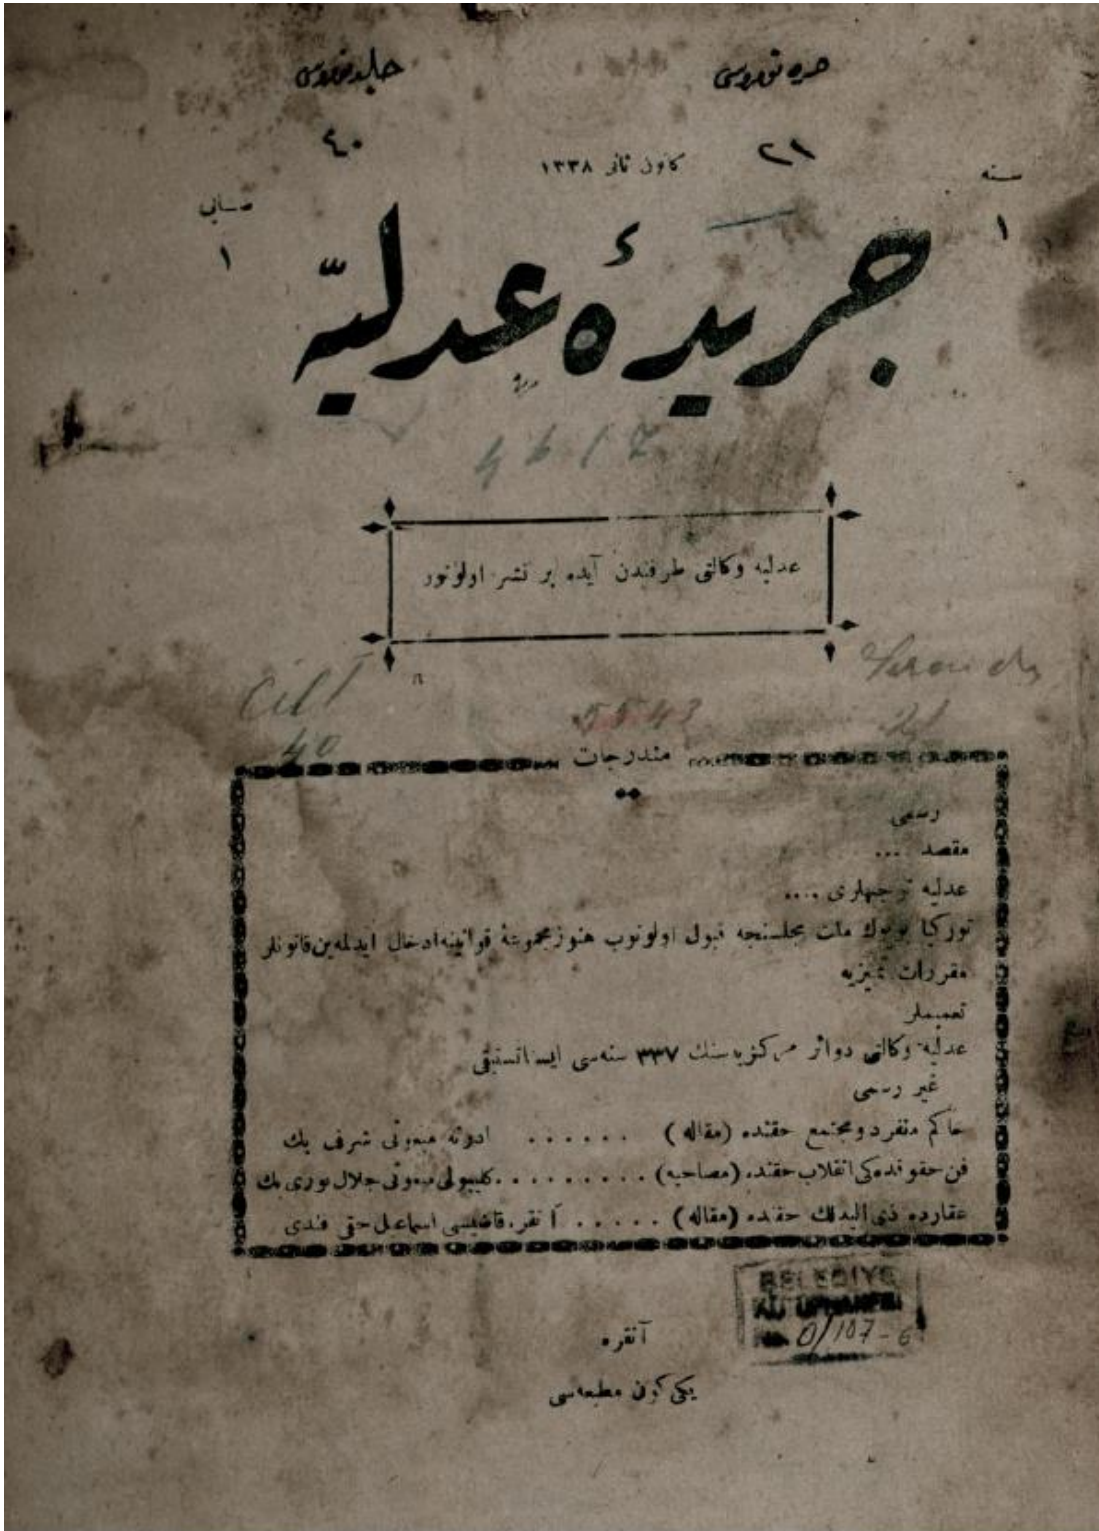 جلد نومروسی
٤٠
٢١
كانون ثانی ١٣٣٨
سنه
١
صایی
١
جریدۀ عدلیّه
4617
عدلیه وكالتی طرفندن آیده بر نشر اولونور
Cilt
40
5543
21
مندرجات
رسمی
مقصد ...
عدلیه توجیهلری ....
توركیا بویوك ملت مجلسنجه قبول اولونوب هنوز مجموعۀ قوانینه ادخال ایدلمه‌ین قانونلر
مقررات تمیزیه
تعمیملر
عدلیه وكالتی دوائر مركزیه‌سنك ٣٣٧ سنه‌سی ایستاتستیقی
غیر رسمی
حاكم منفرد و مجتمع حقنده (مقاله) ...... ادرنه مبعوثی شرف بك
فن حقوقده‌كی انقلاب حقنده (مصاحبه) ......... كلیبولی مبعوثی جلال نوری بك
عقارده ذی الیدلك حقنده (مقاله) ..... آنقره قاضیسی اسماعیل حقی افندی
BELEDİYE
No. O/107-6
آنقره
یكی كون مطبعه‌سی